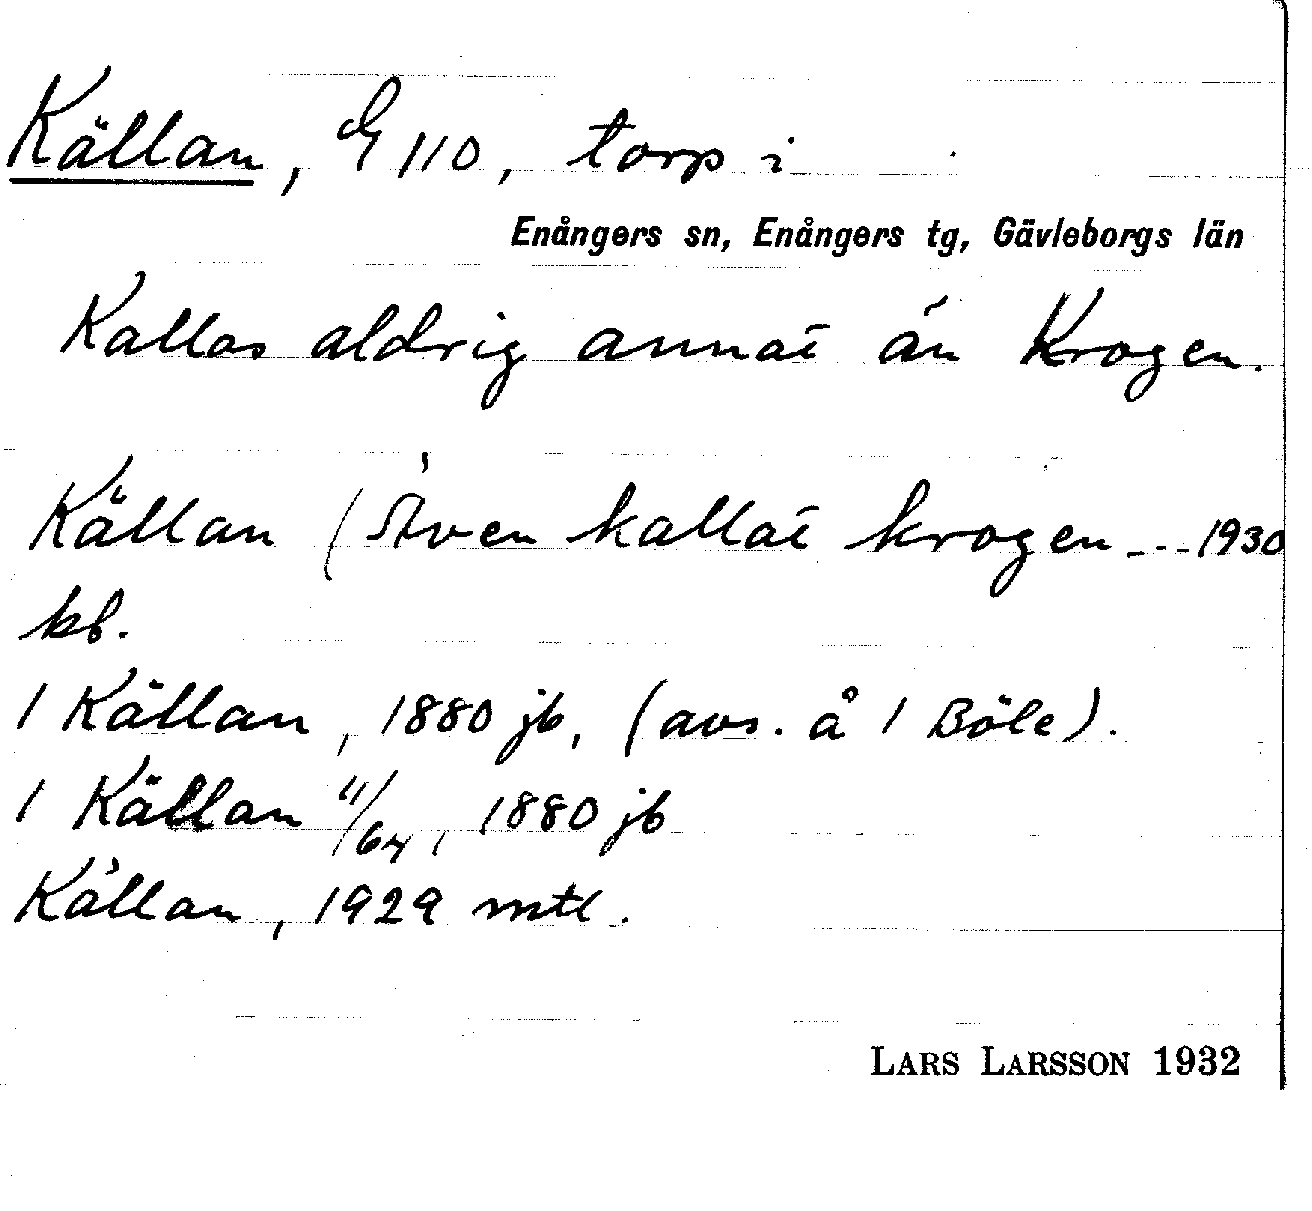 Källan, G 110, torp i
Enångers sn, Enångers tg, Gävleborgs län
Kallas aldrig annat än Krogen.
Källan (Även kallat krogen --- 1930
kb.
1 Källan, 1880 jb, (avs. å 1 Böle).
1 Källan 11/64, 1880 jb
Källan, 1929 mtl.
LARS LARSSON 1932